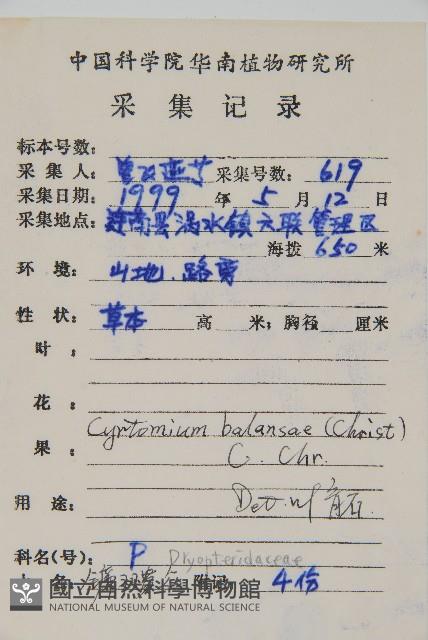 中国科学院华南植物研究所
采集记录
标本号数:
采集人: 曾 采集号数: 619
采集日期: 1999 年 5 月 12 日
采集地点: 连南县涡水镇六联管理区
海拨 650 米
环境: 山地.路旁
性状: 草本 高 米; 胸径 厘米
叶:
花:
果:
Cyrtomium balansae (Christ)
C. Chr.
用途:
Det.
科名(号): P Dryopteridaceae
名: 附记 4份
國立自然科學博物館
NATIONAL MUSEUM OF NATURAL SCIENCE